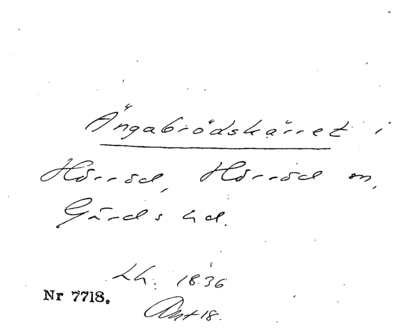 Ängabrödskärret i
Hörröd, Hörröd sn,
Gärds hd.
Lh. 1836
Nr 7718.
Akt 18.